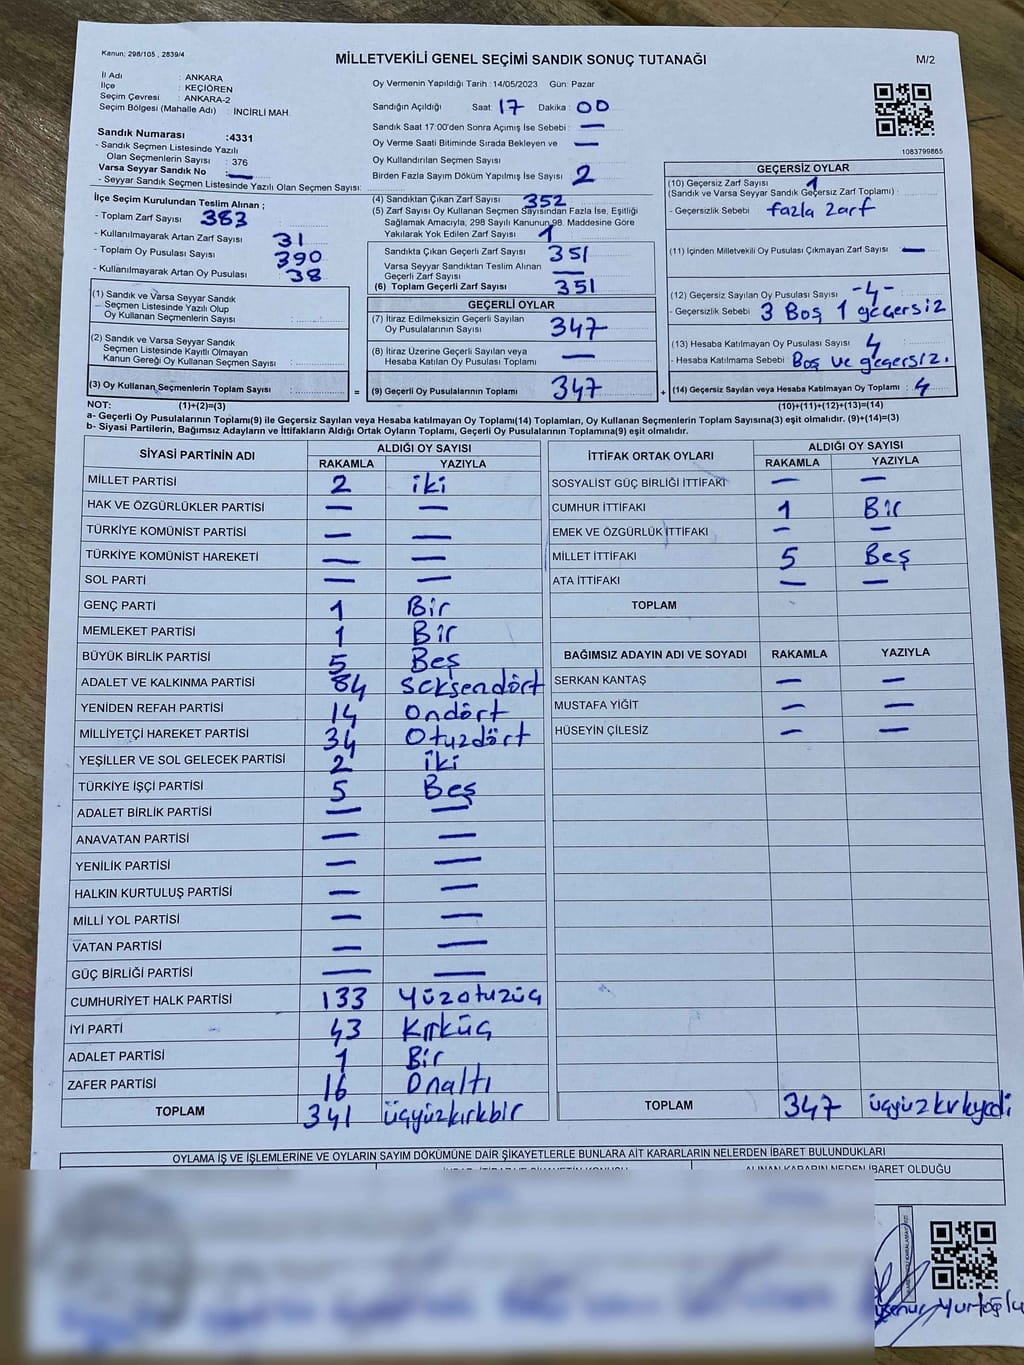 Kanun; 298/105 , 2839/4
MİLLETVEKİLİ GENEL SEÇİMİ SANDIK SONUÇ TUTANAĞI
M/2
İl Adı : ANKARA
İlçe : KEÇİÖREN
Seçim Çevresi : ANKARA-2
Seçim Bölgesi (Mahalle Adı) : İNCİRLİ MAH.
Sandık Numarası :4331
- Sandık Seçmen Listesinde Yazılı
Olan Seçmenlerin Sayısı : 376
Varsa Seyyar Sandık No —
- Seyyar Sandık Seçmen Listesinde Yazılı Olan Seçmen Sayısı:
Oy Vermenin Yapıldığı Tarih : 14/05/2023 Gün: Pazar
Sandığın Açıldığı Saat: 17 Dakika : 00
Sandık Saat 17:00'den Sonra Açımış İse Sebebi : —
Oy Verme Saati Bitiminde Sırada Bekleyen ve —
Oy Kullandırılan Seçmen Sayısı
Birden Fazla Sayım Döküm Yapılmış İse Sayısı : 2
1083799865
İlçe Seçim Kurulundan Teslim Alınan ;
- Toplam Zarf Sayısı 383
- Kullanılmayarak Artan Zarf Sayısı 31
- Toplam Oy Pusulası Sayısı 390
- Kullanılmayarak Artan Oy Pusulası 38
(1) Sandık ve Varsa Seyyar Sandık
Seçmen Listesinde Yazılı Olup
Oy Kullanan Seçmenlerin Sayısı :
(2) Sandık ve Varsa Seyyar Sandık
Seçmen Listesinde Kayıtlı Olmayan
Kanun Gereği Oy Kullanan Seçmen Sayısı :
(3) Oy Kullanan Seçmenlerin Toplam Sayısı :
(4) Sandıktan Çıkan Zarf Sayısı : 352
(5) Zarf Sayısı Oy Kullanan Seçmen Sayısından Fazla İse, Eşitliği
Sağlamak Amacıyla, 298 Sayılı Kanunun 98. Maddesine Göre
Yakılarak Yok Edilen Zarf Sayısı : 1
Sandıkta Çıkan Geçerli Zarf Sayısı : 351
Varsa Seyyar Sandıktan Teslim Alınan
Geçerli Zarf Sayısı : —
(6) Toplam Geçerli Zarf Sayısı : 351
GEÇERLİ OYLAR
(7) İtiraz Edilmeksizin Geçerli Sayılan
Oy Pusulalarının Sayısı : 347
(8) İtiraz Üzerine Geçerli Sayılan veya
Hesaba Katılan Oy Pusulası Toplamı : —
= (9) Geçerli Oy Pusulalarının Toplamı : 347 +
GEÇERSİZ OYLAR
(10) Geçersiz Zarf Sayısı 1
(Sandık ve Varsa Seyyar Sandık Geçersiz Zarf Toplamı) :
- Geçersizlik Sebebi : fazla zarf
(11) İçinden Milletvekili Oy Pusulası Çıkmayan Zarf Sayısı : —
(12) Geçersiz Sayılan Oy Pusulası Sayısı : -4-
- Geçersizlik Sebebi : 3 Boş 1 geçersiz
(13) Hesaba Katılmayan Oy Pusulası Sayısı : 4
- Hesaba Katılmama Sebebi : Boş ve geçersiz.
(14) Geçersiz Sayılan veya Hesaba Katılmayan Oy Toplamı : 4
NOT: (1)+(2)=(3)
(10)+(11)+(12)+(13)=(14)
a- Geçerli Oy Pusulalarının Toplamı(9) ile Geçersiz Sayılan veya Hesaba katılmayan Oy Toplamı(14) Toplamları, Oy Kullanan Seçmenlerin Toplam Sayısına(3) eşit olmalıdır. (9)+(14)=(3)
b- Siyasi Partilerin, Bağımsız Adayların ve İttifakların Aldığı Ortak Oyların Toplamı, Geçerli Oy Pusulalarının Toplamına(9) eşit olmalıdır.
SİYASİ PARTİNİN ADI ALDIĞI OY SAYISI
RAKAMLA YAZIYLA
MİLLET PARTİSİ 2 iki
HAK VE ÖZGÜRLÜKLER PARTİSİ — —
TÜRKİYE KOMÜNİST PARTİSİ — —
TÜRKİYE KOMÜNİST HAREKETİ — —
SOL PARTİ — —
GENÇ PARTİ 1 Bir
MEMLEKET PARTİSİ 1 Bir
BÜYÜK BİRLİK PARTİSİ 5 Beş
ADALET VE KALKINMA PARTİSİ 84 seksendört
YENİDEN REFAH PARTİSİ 14 Ondört
MİLLİYETÇİ HAREKET PARTİSİ 34 Otuzdört
YEŞİLLER VE SOL GELECEK PARTİSİ 2 iki
TÜRKİYE İŞÇİ PARTİSİ 5 Beş
ADALET BİRLİK PARTİSİ — —
ANAVATAN PARTİSİ — —
YENİLİK PARTİSİ — —
HALKIN KURTULUŞ PARTİSİ — —
MİLLİ YOL PARTİSİ — —
VATAN PARTİSİ — —
GÜÇ BİRLİĞİ PARTİSİ — —
CUMHURİYET HALK PARTİSİ 133 Yüzotuzüç
İYİ PARTİ 43 Kırküç
ADALET PARTİSİ 1 Bir
ZAFER PARTİSİ 16 Onaltı
TOPLAM 341 üçyüzkırkbir
İTTİFAK ORTAK OYLARI ALDIĞI OY SAYISI
RAKAMLA YAZIYLA
SOSYALİST GÜÇ BİRLİĞİ İTTİFAKI — —
CUMHUR İTTİFAKI 1 Bir
EMEK VE ÖZGÜRLÜK İTTİFAKI — —
MİLLET İTTİFAKI 5 Beş
ATA İTTİFAKI — —
TOPLAM
BAĞIMSIZ ADAYIN ADI VE SOYADI RAKAMLA YAZIYLA
SERKAN KANTAŞ — —
MUSTAFA YİĞİT — —
HÜSEYİN ÇİLESİZ — —
TOPLAM 347 üçyüzkırkyedi
OYLAMA İŞ VE İŞLEMLERİNE VE OYLARIN SAYIM DÖKÜMÜNE DAİR ŞİKAYETLERLE BUNLARA AİT KARARLARIN NELERDEN İBARET BULUNDUKLARI
ALINAN KARARIN NEDEN İBARET OLDUĞU
Yurtoğlu